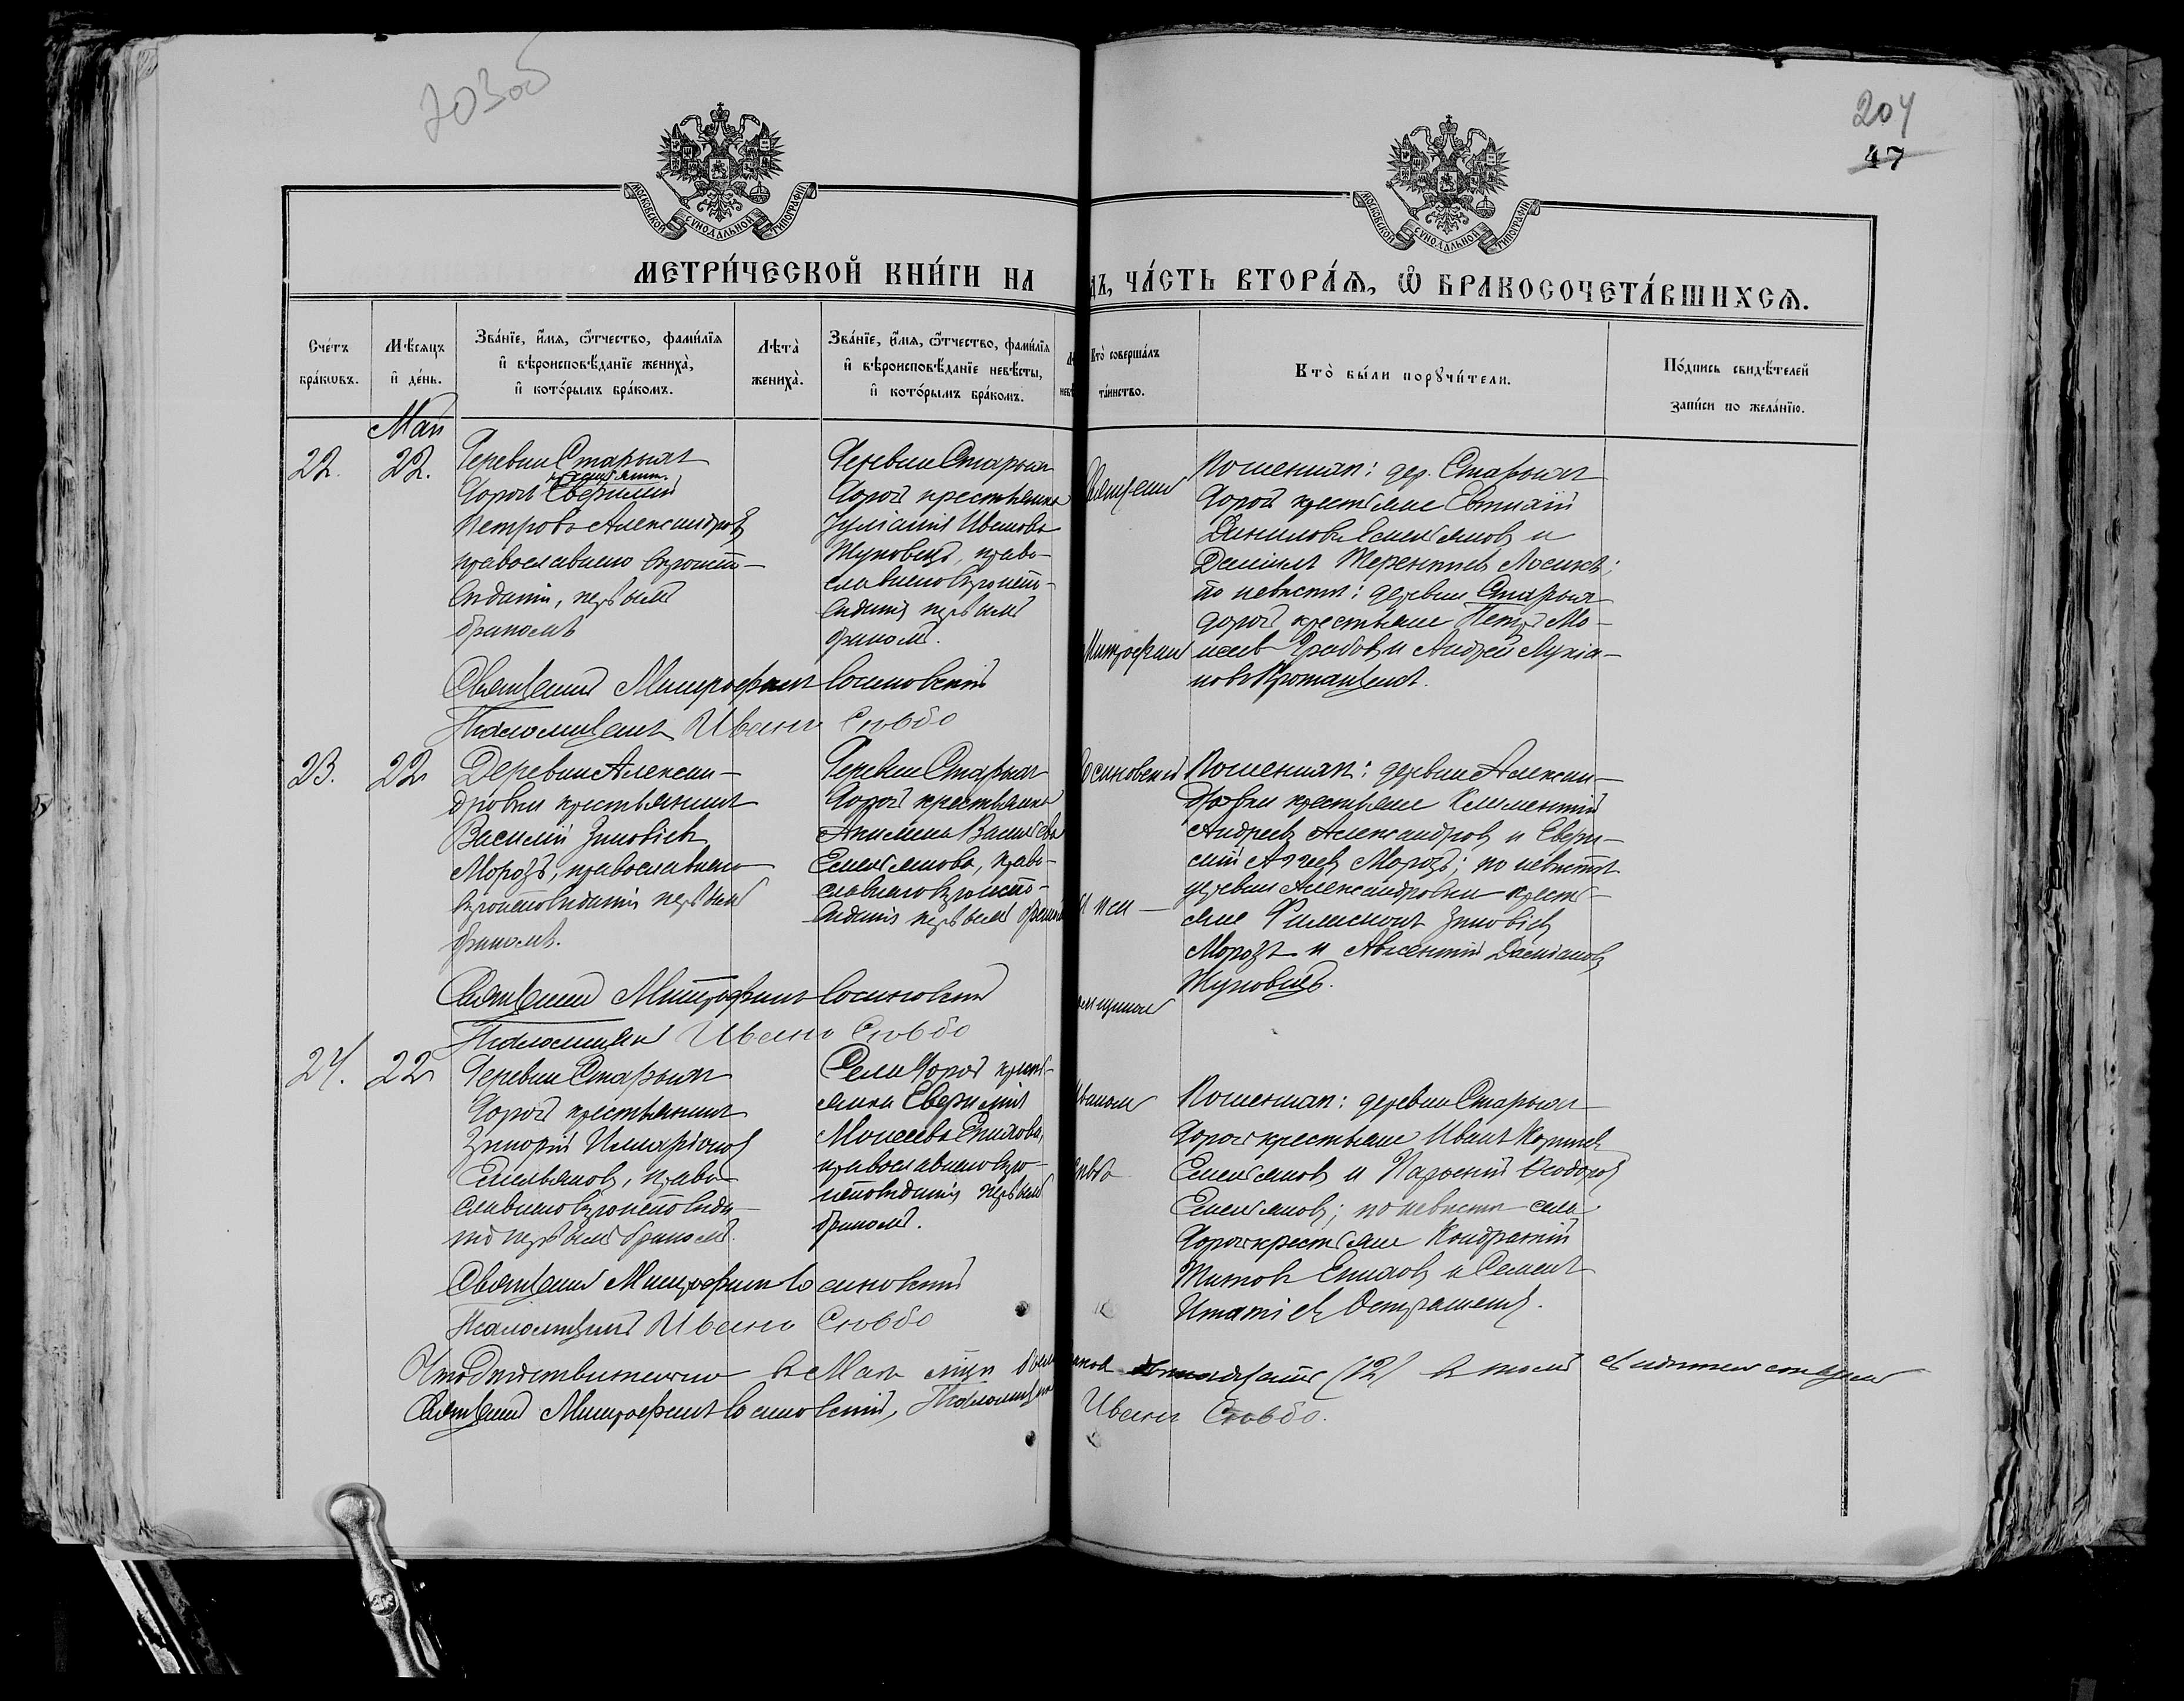 203об
204
47
МОСКОВСКОЙ СѴНОДАЛЬНОЙ ТИПОГРАФІИ
МОСКОВСКОЙ СѴНОДАЛЬНОЙ ТИПОГРАФІИ
МЕТРИ́ЧЕСКОЙ КНИ́ГИ НА
ДЪ, ЧА́СТЬ ВТОРА́Ѧ, Ѽ БРАКОСОЧЕТА́ВШИХСѦ.
Сче́тъ бра́кѡвъ.
Мѣ́сяцъ и҆ де́нь.
Зва́нїе, и҆́мя, ѻ҆́тчество, фами́лїя
и҆ вѣроисповѣ́данїе жениха̀,
и҆ кото́рымъ бра́комъ.
Лѣта̀ жениха̀.
Зва́нїе, и҆́мя, ѻ҆́тчество, фами́лїя
и҆ вѣроисповѣ́данїе невѣ́сты,
и҆ кото́рымъ бра́комъ.
Кто̀ соверша́лъ та́инство.
Кто̀ бы́ли порꙋчи́тели.
По́дпись свидѣ́телей
за́писи по жела́нїю.
Май
22.
22.
Деревни Старыхъ
Дорогъ
Петровъ Александровъ
православнаго вѣроиспо-
вѣданія, первымъ
бракомъ
Деревни Старыхъ
Дорогъ крестьянка
Іуліанія Иванова
Жуковецъ, право-
славнаго вѣроиспо-
вѣданія первымъ
бракомъ.
Священникъ
Митрофанъ
По женихѣ: дер. Старыхъ
Дорогъ крестьяне Евтихій
Даниловъ Емельяновъ и
Даміанъ Терентіевъ Лосикъ;
по невѣстѣ: деревни Старыхъ
дорогъ крестьяне Петръ Мо-
исеевъ и Андрей Лукіа-
новъ
Священникъ Митрофанъ Сосиновскій
Псаломщикъ Иванъ Словбо
23.
22
Деревни Алексан-
дровки крестьянинъ
Василій Зиновіевъ
Морозъ, православнаго
вѣроисповѣданія первымъ
бракомъ.
Деревни Старыхъ
Дорогъ крестьянка
Акилина Васильева
Емельянова, право-
славнаго вѣроиспо-
вѣданія первымъ бракомъ
Сосиновскій
и пса-
ломщикъ
По женихѣ: деревни Алексан-
дровки крестьяне Климентій
Андреевъ Александровъ и Евфи-
мій Морозъ; по невѣстѣ
деревни Александровки кресть-
яне Филимонъ Зиновіевъ
Морозъ и Авксентій Даміановъ
Жуковецъ.
Священникъ Митрофанъ Сосиновскій
Псаломщикъ Иванъ Словбо
24.
22
Деревни Старыхъ
Дорогъ крестьянинъ
Григорій Иларіоновъ
Емельяновъ, право-
славнаго вѣроисповѣда-
нія первымъ бракомъ.
Села Дорогъ кресть-
янка Евфимія
Моисеева Епихова,
православнаго вѣро-
исповѣданія первымъ
бракомъ.
Иваномъ
По женихѣ: деревни Старыхъ
Дорогъ крестьяне Иванъ
Емельяновъ и Парѳеній Ѳеодоровъ
Емельяновъ; по невѣстѣ села
Дорогъ крестьяне Кондратій
Титовъ Епиховъ и Семенъ
Игнатіевъ
Священникъ Митрофанъ Сосиновскій
Псаломщикъ Иванъ Словбо
Что дѣйствительно въ Маѣ мѣсяцѣ (12) въ томъ свидѣтельствуемъ
Священникъ Митрофанъ Сосиновскій, Псаломщикъ Иванъ Словбо.